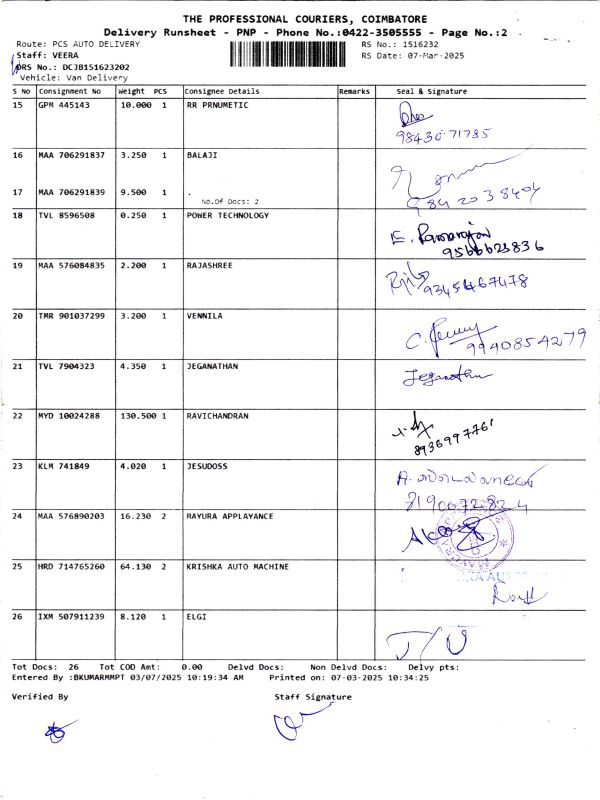 THE PROFESSIONAL COURIERS, COIMBATORE
Delivery Runsheet - PNP - Phone No.:0422-3505555 - Page No.:2
Route: PCS AUTO DELIVERY
RS No.: 1516232
Staff: VEERA
RS Date: 07-Mar-2025
DRS No.: DCJB151623202
Vehicle: Van Delivery
S No Consignment No Weight PCS Consignee Details Remarks Seal & Signature
15 GPM 445143 10.000 1 RR PRNUMETIC
98430 71785
16 MAA 706291837 3.250 1 BALAJI
17 MAA 706291839 9.500 1 .
No.Of Docs: 2
984 20 38404
18 TVL 8596508 0.250 1 POWER TECHNOLOGY
9566623836
19 MAA 576084835 2.200 1 RAJASHREE
9345467478
20 TMR 901037299 3.200 1 VENNILA
9940854279
21 TVL 7904323 4.350 1 JEGANATHAN
Jeganathan
22 MYD 10024288 130.500 1 RAVICHANDRAN
8936997761
23 KLM 741849 4.020 1 JESUDOSS
8190072824
24 MAA 576890203 16.230 2 MAYURA APPLAYANCE
25 HRD 714765260 64.130 2 KRISHKA AUTO MACHINE
26 IXM 507911239 8.120 1 ELGI
Tot Docs: 26 Tot COD Amt: 0.00 Delvd Docs: Non Delvd Docs: Delvy pts:
Entered By :BKUMARMMPT 03/07/2025 10:19:34 AM Printed on: 07-03-2025 10:34:25
Verified By Staff Signature